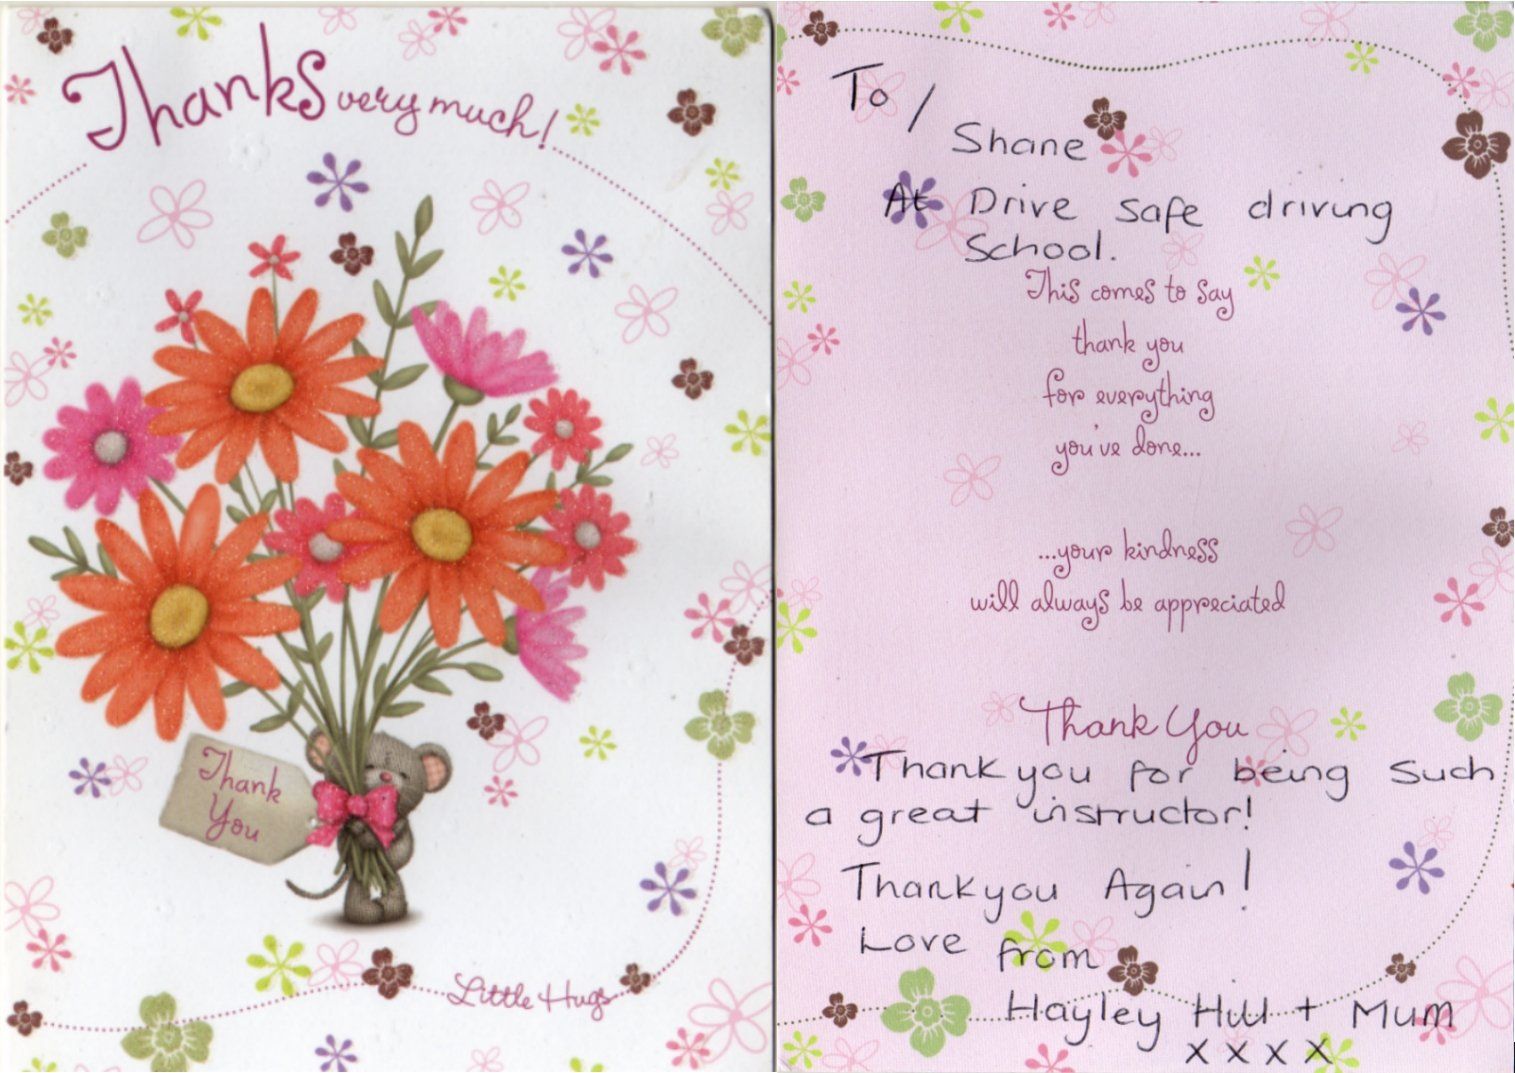 Thanks very much!
Thank
You
Little Hugs
To /
Shane
At Drive safe driving
School.
This comes to say
thank you
for everything
you've done...
...your kindness
will always be appreciated
Thank You
Thank you for being such
a great instructor!
Thankyou Again!
Love from
Hayley Hill + Mum
x x x x